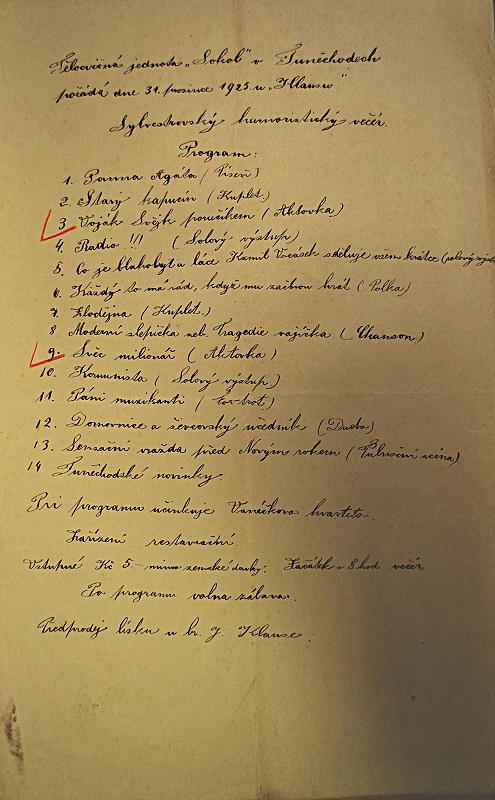 Tělocvičná jednota „Sokol" v Tuněchodech
pořádá dne 31. prosince 1925 u „Klausů"
Sylvestrovský humoristický večer.
Program:
1. Panna Agáta (Píseň)
2. Starý kapucín (Kuplet.)
3 Voják Švejk poručíkem (Aktovka)
4. Radio !!! (Solový výstup)
5. Co je blahobyt a láce Kamil Vocásek sděluje všem krátce (solový výstup)
6. Každý to má rád, když mu začnou hrát (Polka)
7. Zlodějna (Kuplet.)
8 Moderní slepička neb. Tragedie vajíčka (Chanson.)
9. Švec milionář (Aktovka)
10. Komunista (Solový výstup.)
11. Páni muzikanti (fox-trot.)
12. Domovnice a ševcovský učedník (Dueto)
13. Sensační vražda před Novým rokem (Půlnoční scéna)
14 Tuněchodské novinky.
Při programu učinkuje Vaněčkovo kvarteto.
Zařízení restaurační.
Vstupné Kč 5.– mimo zemské dávky. Začátek v 8 hod. večer
Po programu volna zábava.
Předprodej lísků u br. J. Klause.